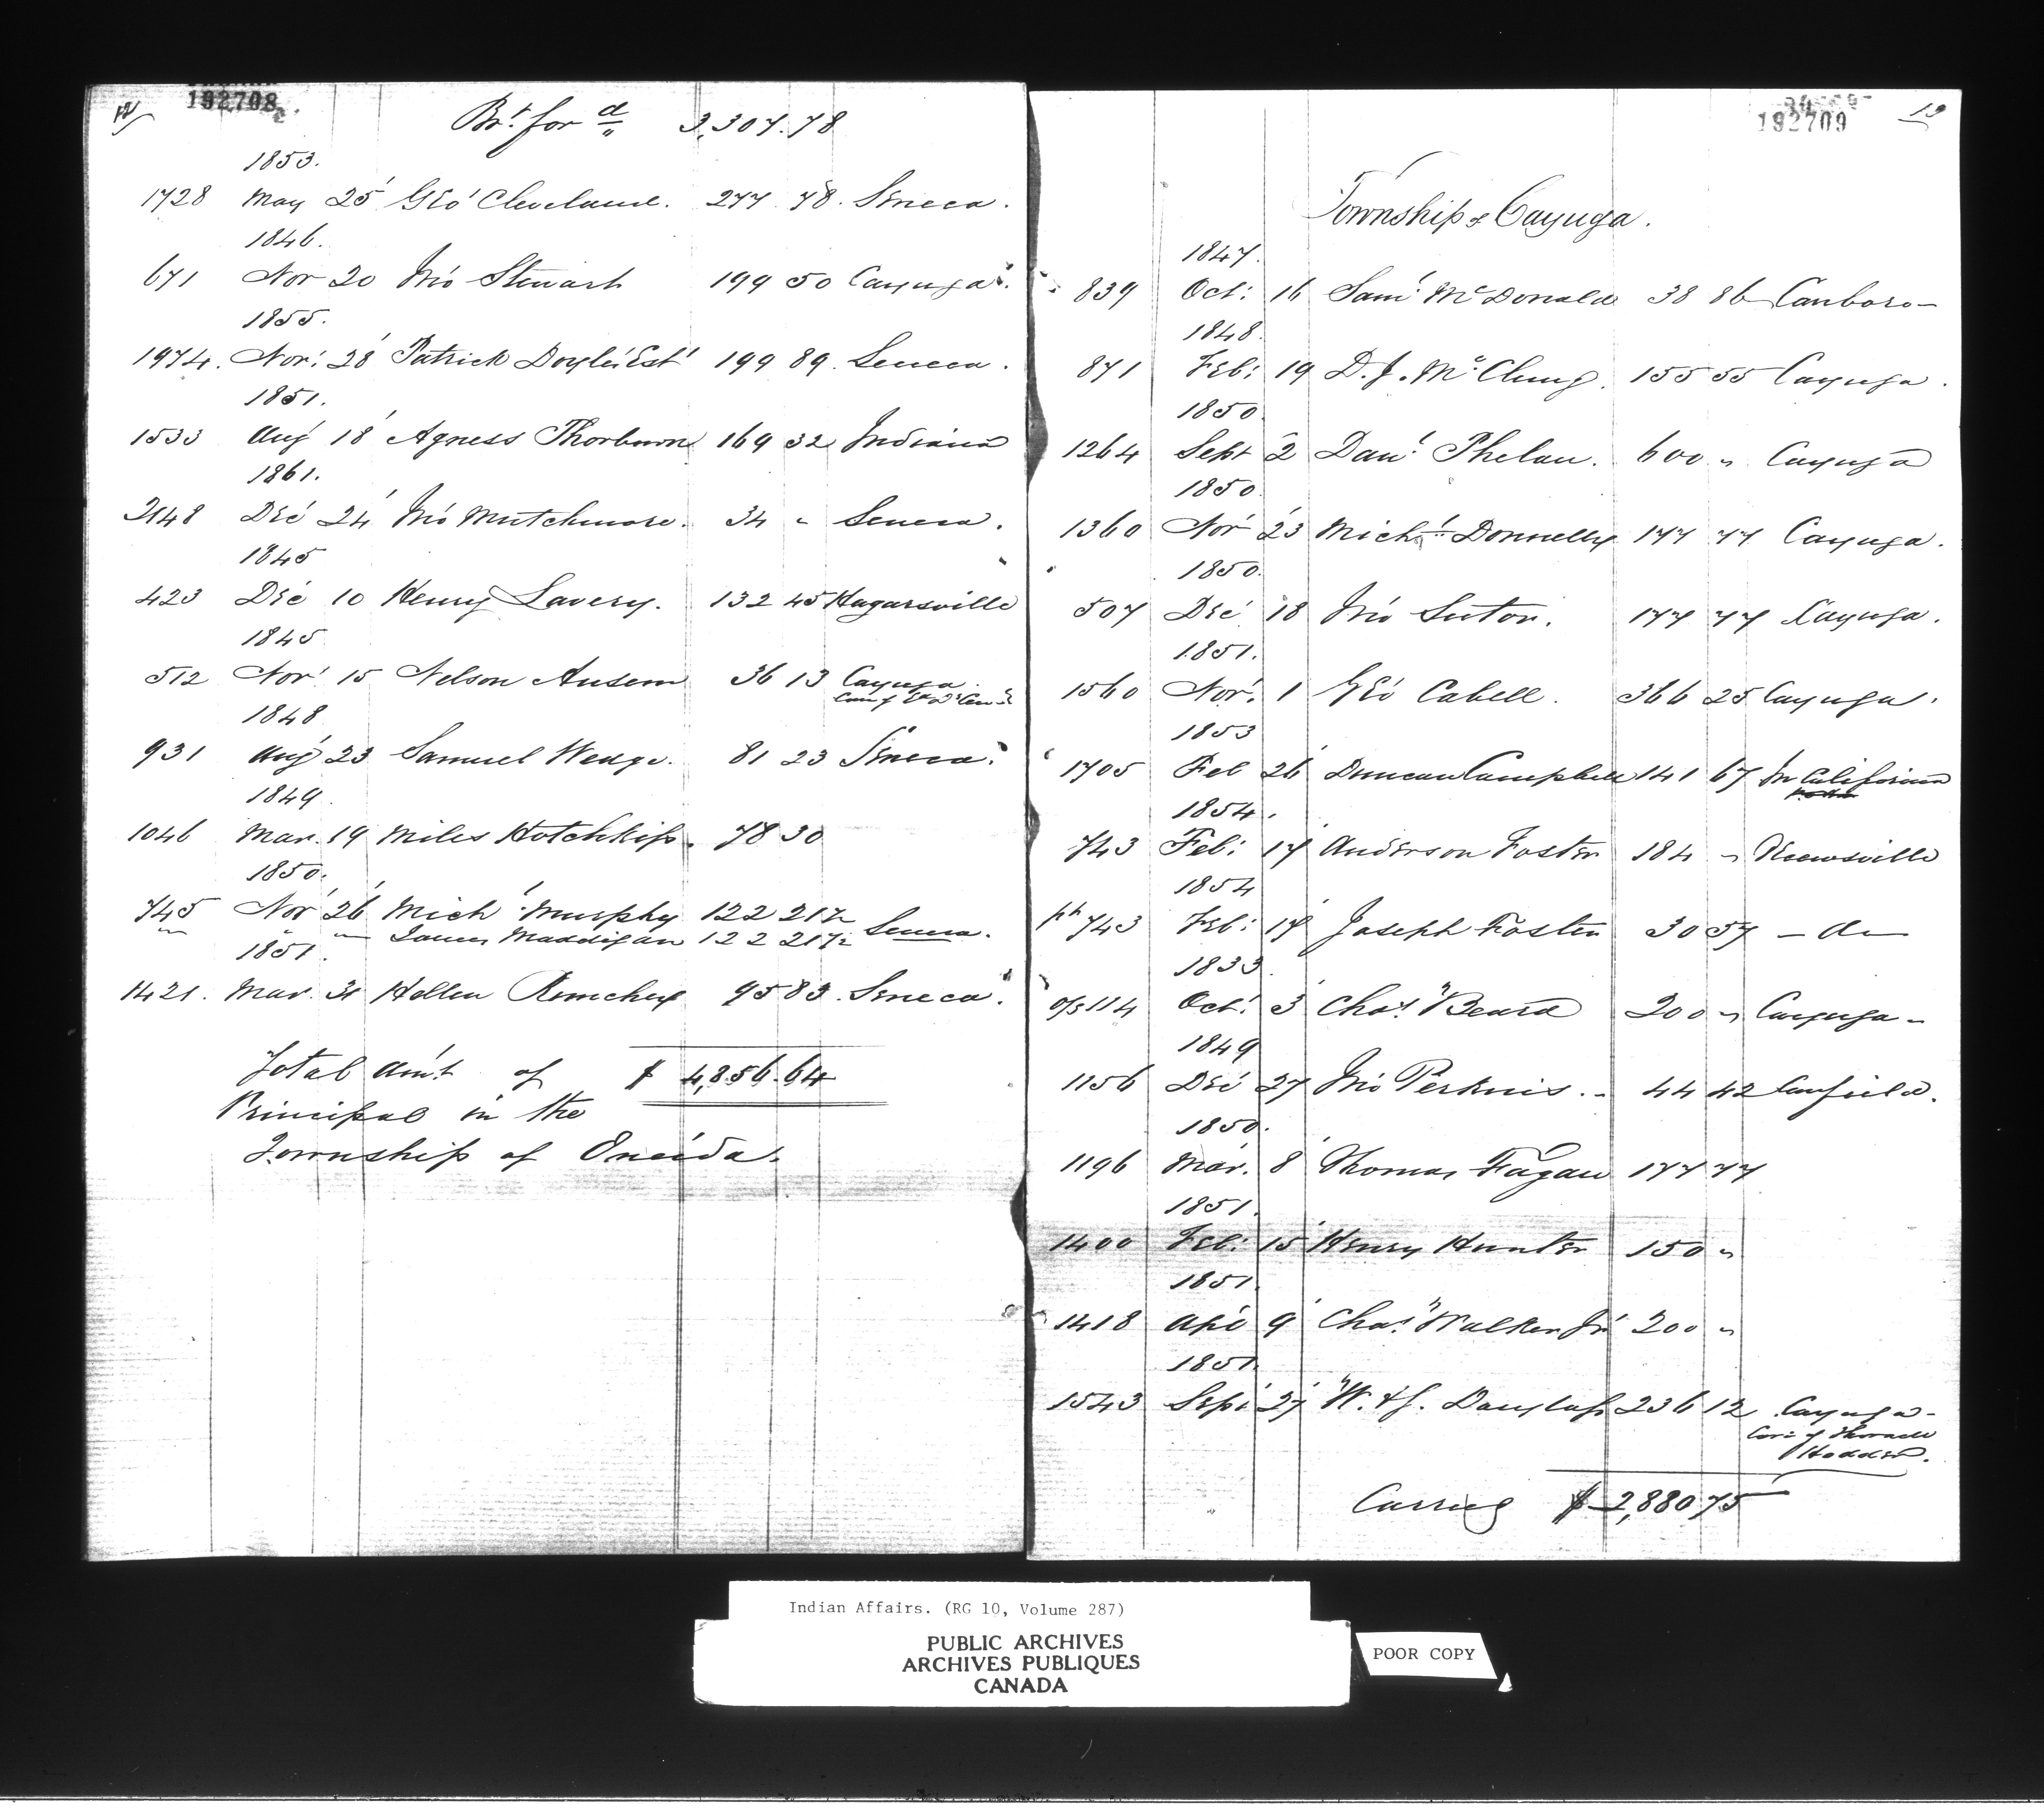 12
192708
Brt ford 3,307.78
1853.
1728 May 25 Geo Cleveland. 277 78. Seneca.
1846.
671 Nov 20 Jno Stewart 199 50 Cayuga.
1855.
1974. Nov: 28 Patrick Doyle Est 199 89. Seneca.
1851.
1533 Aug 18 Agness Thorburn 169 32 Indiana
1861.
2148 Dec 24 Jno Mutchmore. 34 " Seneca.
1845
423 Dec 10 Henry Lavery. 132 45 Hagarsville
1845
512 Nov 15 Nelson 36 13 Cayuga.
1848
931 Aug 23 Samuel Wedge. 81 23 Seneca.
1849.
1046 Mar. 19 Miles Hotchkiss. 78 30
1850.
745 Nov 26 Michl Murphy 122 21½
" " " James Maddigan 122 21½ Seneca.
1851.
1421. Mar. 31 Hellen 95 83. Seneca.
Total Amt of $ 4,856.64
Principal in the
Township of Oneida.
192709
13
Township of Cayuga.
1847.
839 Oct: 16 Saml McDonald 38 86 Canboro-
1848.
871 Feb: 19 D. J. McClung. 155 55 Cayuga.
1850.
1264 Sept 2 Danl Phelan. 600 " Cayuga
1850.
1360 Nov 23 Michl Donnelly 177 77 Cayuga.
1850.
507 Dec 18 Jno Sutor. 177 77 Cayuga.
1851.
1560 Nov. 1 Geo Cabell. 366 25 Cayuga.
1853
1705 Feb 26 Duncan Campbell 141 67 In California
1854.
743 Feb: 17 Anderson Foster 184 "
1854
pt 743 Feb: 17 Joseph Foster 30 57 - do -
1833.
o/s 114 Oct. 3 Chas. Beard 200 " Cayuga -
1849
1156 Dec 27 Jno Perkins. - 44 42 Canfield.
1850.
1196 Mar. 8 Thomas Fagan 177 77
1851.
1400 Feb: 15 Henry Hunter 150 "
1851.
1418 Apl 9 Chas. Walker Jr 200 "
1851.
1543 Sept 27 W. & J. Douglass 236 12 Cayuga -
Cor: of
Hodder.
Carried $ 2,880 75
Indian Affairs. (RG 10, Volume 287)
PUBLIC ARCHIVES
ARCHIVES PUBLIQUES
CANADA
POOR COPY